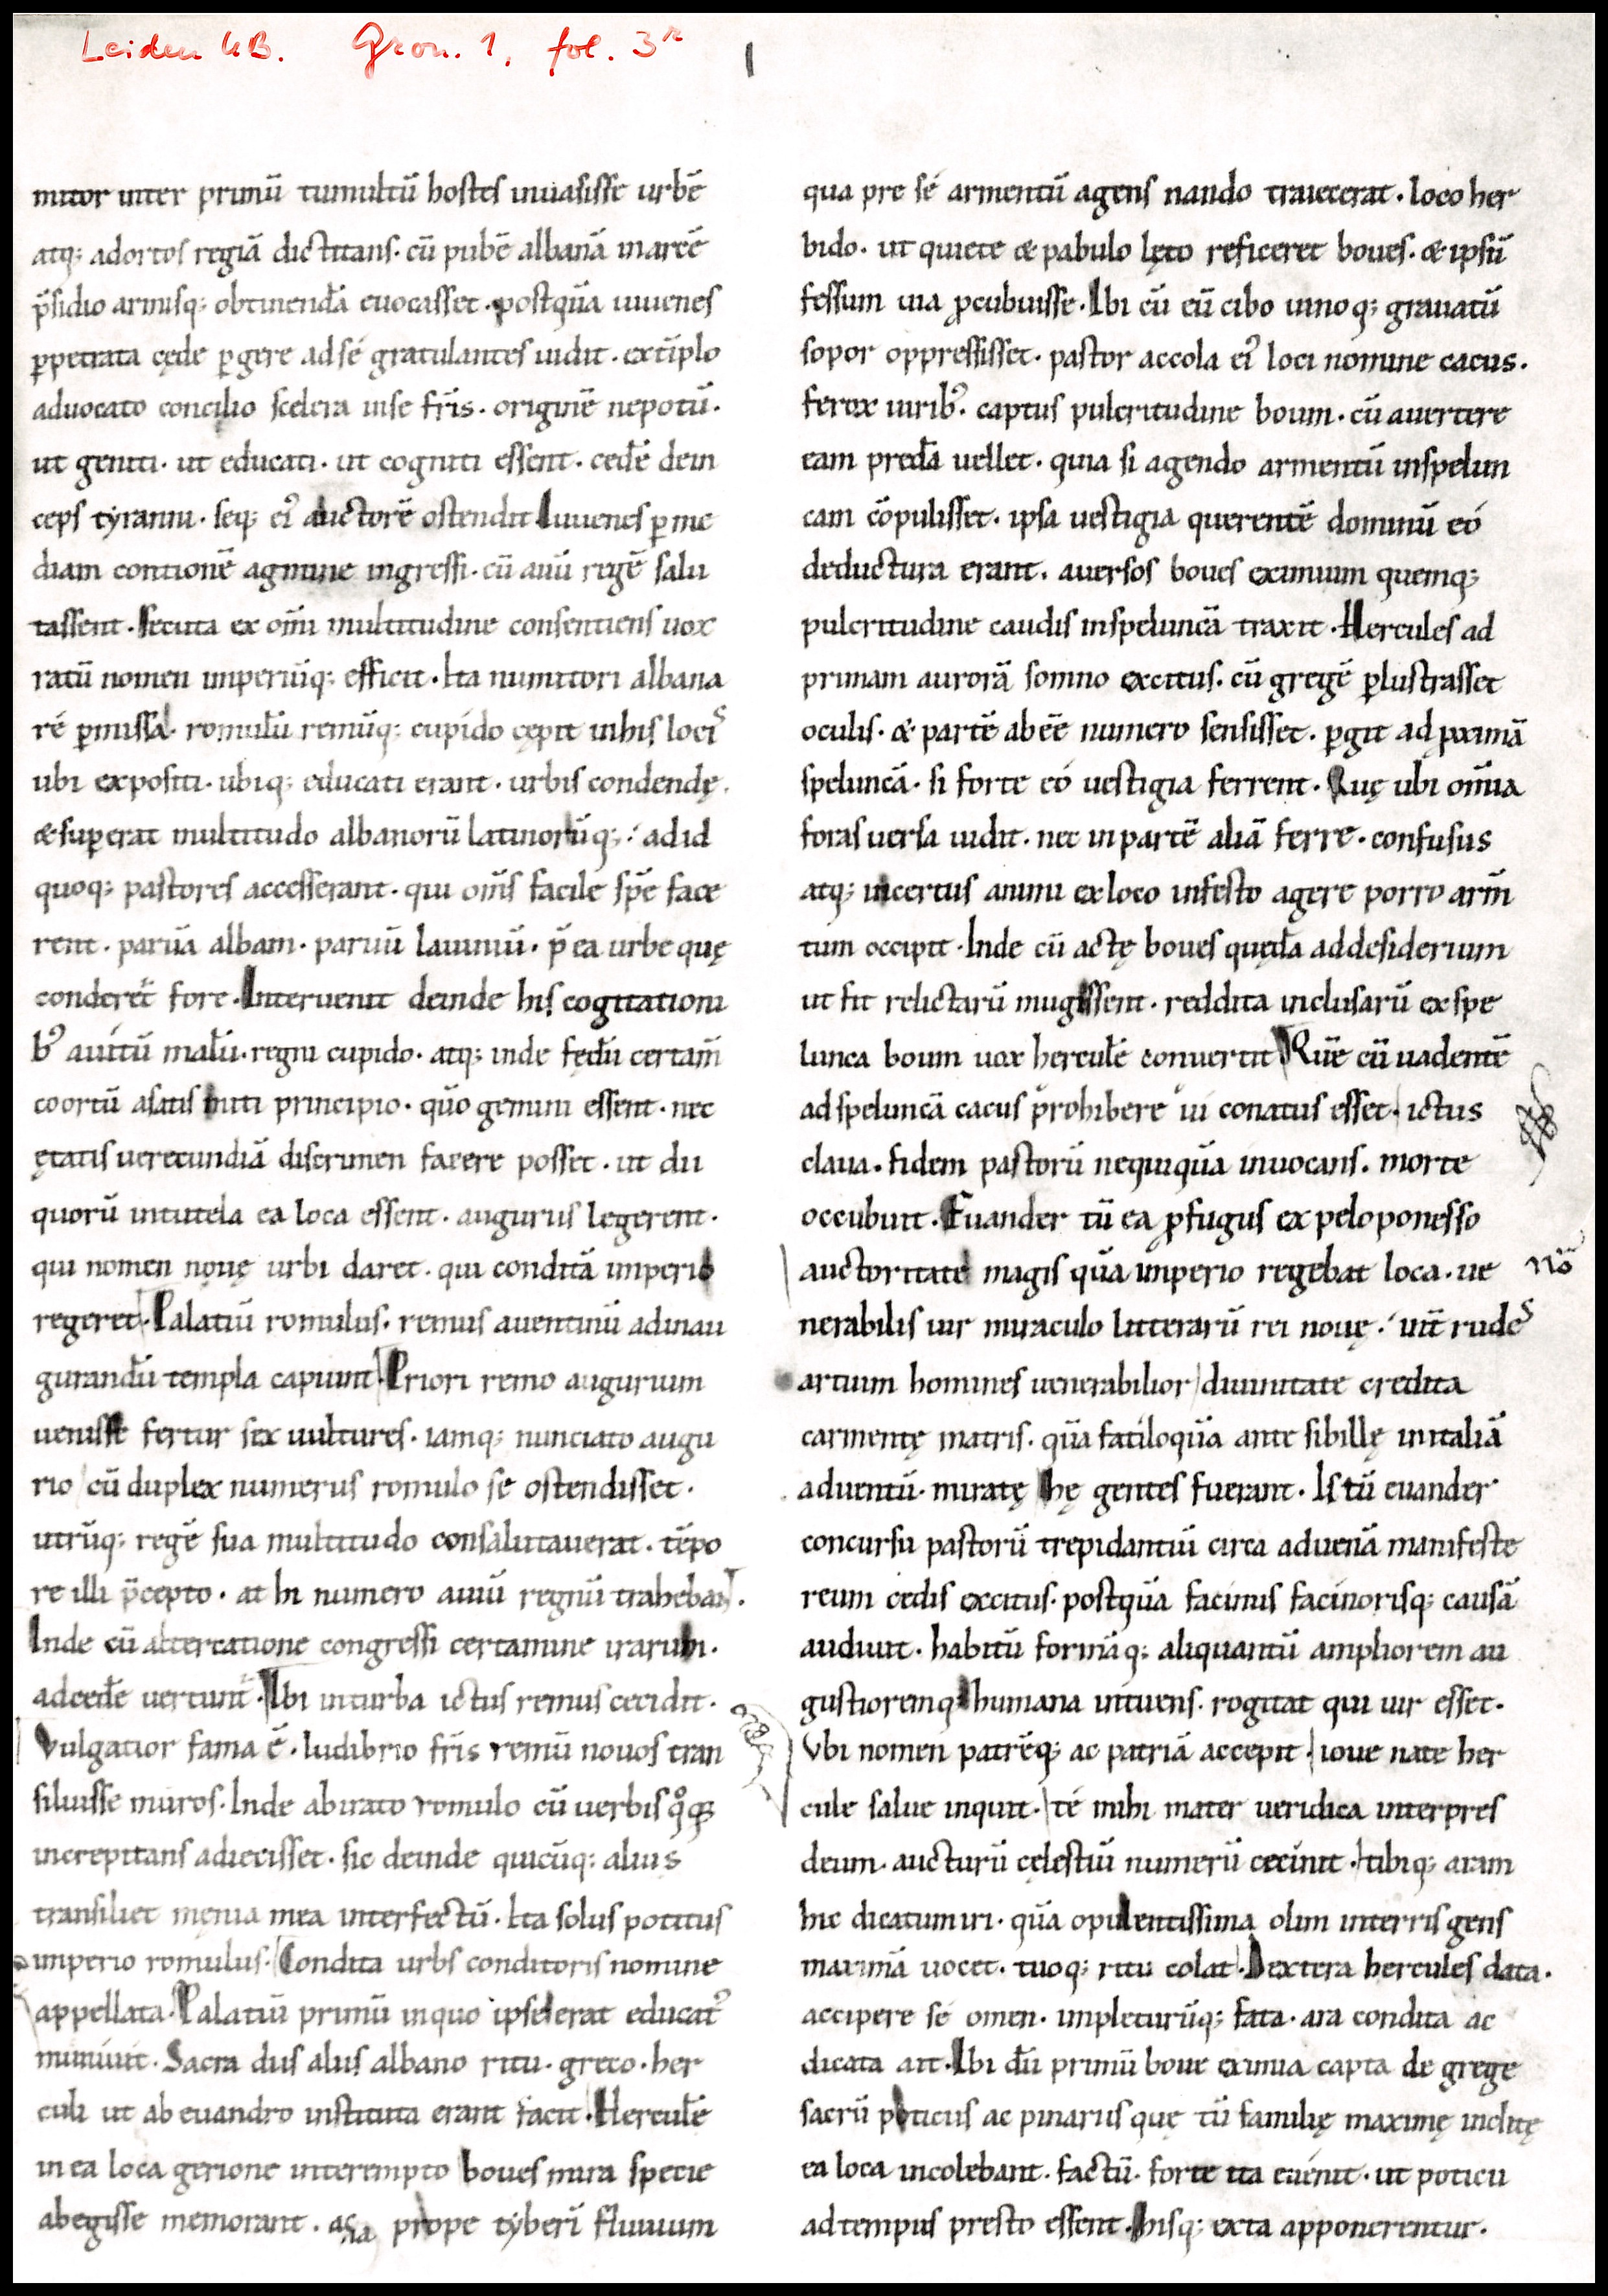 Leiden UB. Gron. 1, fol. 3r
mitor inter primū tumultū hostes inuasisse urbē
atq; adortos regiā dictitans. cū pubē albanā in arcē
p̄sidio armisq; obtinendā euocasset. postquā iuuenes
ꝑpetrata cęde ꝑgere ad sé gratulantes uidit. extīplo
aduocato concilio scelera in se fr̄is. originē nepotū.
ut geniti. ut educati. ut cogniti essent. cedē dein
ceps tyranni. seq; ei᾽ auctorē ostendit Iuuenes ꝑ me
diam contionē agmine ingressi. cū auū regē salu
tassent. Secuta ex om̄i multitudine consentiens uox
ratū nomen imperiūq; efficit. Ita numitori albana
ré ꝑmissa. romulū remūq; cupido cępit in his locis
ubi expositi. ubiq; educati erant. urbis condendę.
& suꝑerat multitudo albanorū latinorūq; ad id
quoq; pastores accesserant. qui om̄s facile spē face
rent. paruā albam. paruū lauiniū. p̄ ea urbe quę
conderet̄ fore. Interuenit deinde his cogitationi
b᾽ auitū malū. regni cupido. atq; inde fędū certam̄
coortū a satis miti principio. quō gemini essent. nec
ętatis uerecundiā discrimen facere posset. ut dii
quorū in tutela ea loca essent. auguriis legerent.
qui nomen nouę urbi daret. qui conditā imperio
regeret. Palatiū romulus. remus auentinū ad inau
gurandū templa capiunt. Priori remo augurium
uenisse fertur sex uultures. iamq; nunciato augu
rio cū duplex numerus romulo se ostendisset.
utrūq; regē sua multitudo consalutauerat. tēpo
re illi p̄cepto. at hi numero auiū regnū trahebant.
Inde cū altercatione congressi certamine irarum.
ad cedē uertunt̄. Ibi in turba ictus remus cecidit.
Vulgatior fama ē. ludibrio fr̄is remū nouos tran
siluisse muros. Inde ab irato romulo cū uerbis qͦq;
increpitans adiecisset. sic deinde quicūq; alius
transiliet męnia mea interfectū. Ita solus potitus
imperio romulus. Condita urbs conditoris nomine
appellata. Palatiū primū in quo ipse erat educat᾽
muniuit. Sacra diis aliis albano ritu. greco. her
culi ut ab euandro instituta erant facit. Herculē
in ea loca gerione interempto boues mira specie
abegisse memorant. ac prope tyberī fluuium
qua pre sé armentū agens nando traiecerat. loco her
bido. ut quiete & pabulo lęto reficeret boues. & ipsū
fessum uia ꝓcubuisse. Ibi cū eū cibo uinoq; grauatū
sopor oppressisset. pastor accola ei᾽ loci nomine cacus.
ferox uirib᾽. captus pulcritudine boum. cū auertere
eam predā uellet. quia si agendo armentū in spelun
cam cōpulisset. ipsa uestigia querentē dominū eó
deductura erant. auersos boues eximium quemq;
pulcritudine caudis in speluncā traxit. Hercules ad
primam aurorā somno excitus. cū gregē ꝑlustrasset
oculis. & partē abēē numero sensisset. ꝑgit ad pximā
speluncā. si forte eó uestigia ferrent. Quę ubi om̄ia
foras uersa uidit. nec in partē aliā ferre. confusus
atq; incertus animi ex loco infesto agere porro arm̄
tum occipit. Inde cū actę boues quędā ad desiderium
ut fit relictarū mugissent. reddita inclusarū ex spe
lunca boum uox herculē conuertit Quē cū uadentē
ad speluncā cacus prohibere ui conatus esset. ictus
claua. fidem pastorū nequiquā inuocans. morte
occubuit. Euander tū ea ꝓfugus ex peloponesso
auctoritate magis quā imperio regebat loca. ue
nerabilis uir miraculo litterarū rei nouę. int̄ rudes
artium homines uenerabilior diuinitate credita
carmentę matris. quā fatiloquā ante sibillę in italiā
aduentū. miratę hę gentes fuerant. Is tū euander
concursu pastorū trepidantiū circa aduenā manifestę
reum cedis excitus. postquā facinus facinorisq; causā
audiuit. habitū formāq; aliquantū ampliorem au
gustioremq humana intuens. rogitat qui uir esset.
Vbi nomen patrēq; ac patriā accepit. ioue nate her
cule salue inquit. té mihi mater ueridica interpres
deum. aucturū cęlestiū numerū cecinit. tibiq; aram
hic dicatum iri. quā opulentissima olim in terris gens
maximā uocet. tuoq; ritu colat. Dextera hercules data.
accipere sé omen. impleturūq; fata. ara condita ac
dicata ait. Ibi dū primū boue eximia capta de grege
sacrū poticus ac pinarius que tū familię maximę inclitę
ea loca incolebant. factū. forte ita euenit. ut poticii
ad tempus presto essent. hisq; exta apponerentur.